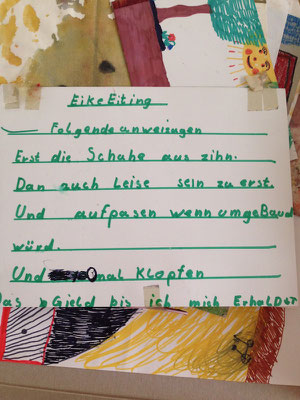 Eike Eiting
Folgende anweizugen
Erst die Schahe aus zihn.
Dan auch Leise sein zu erst.
Und aufpasen wenn umgeBaud
würd.
Und nal Klopfen
Das Gield bis ich mich Erholder